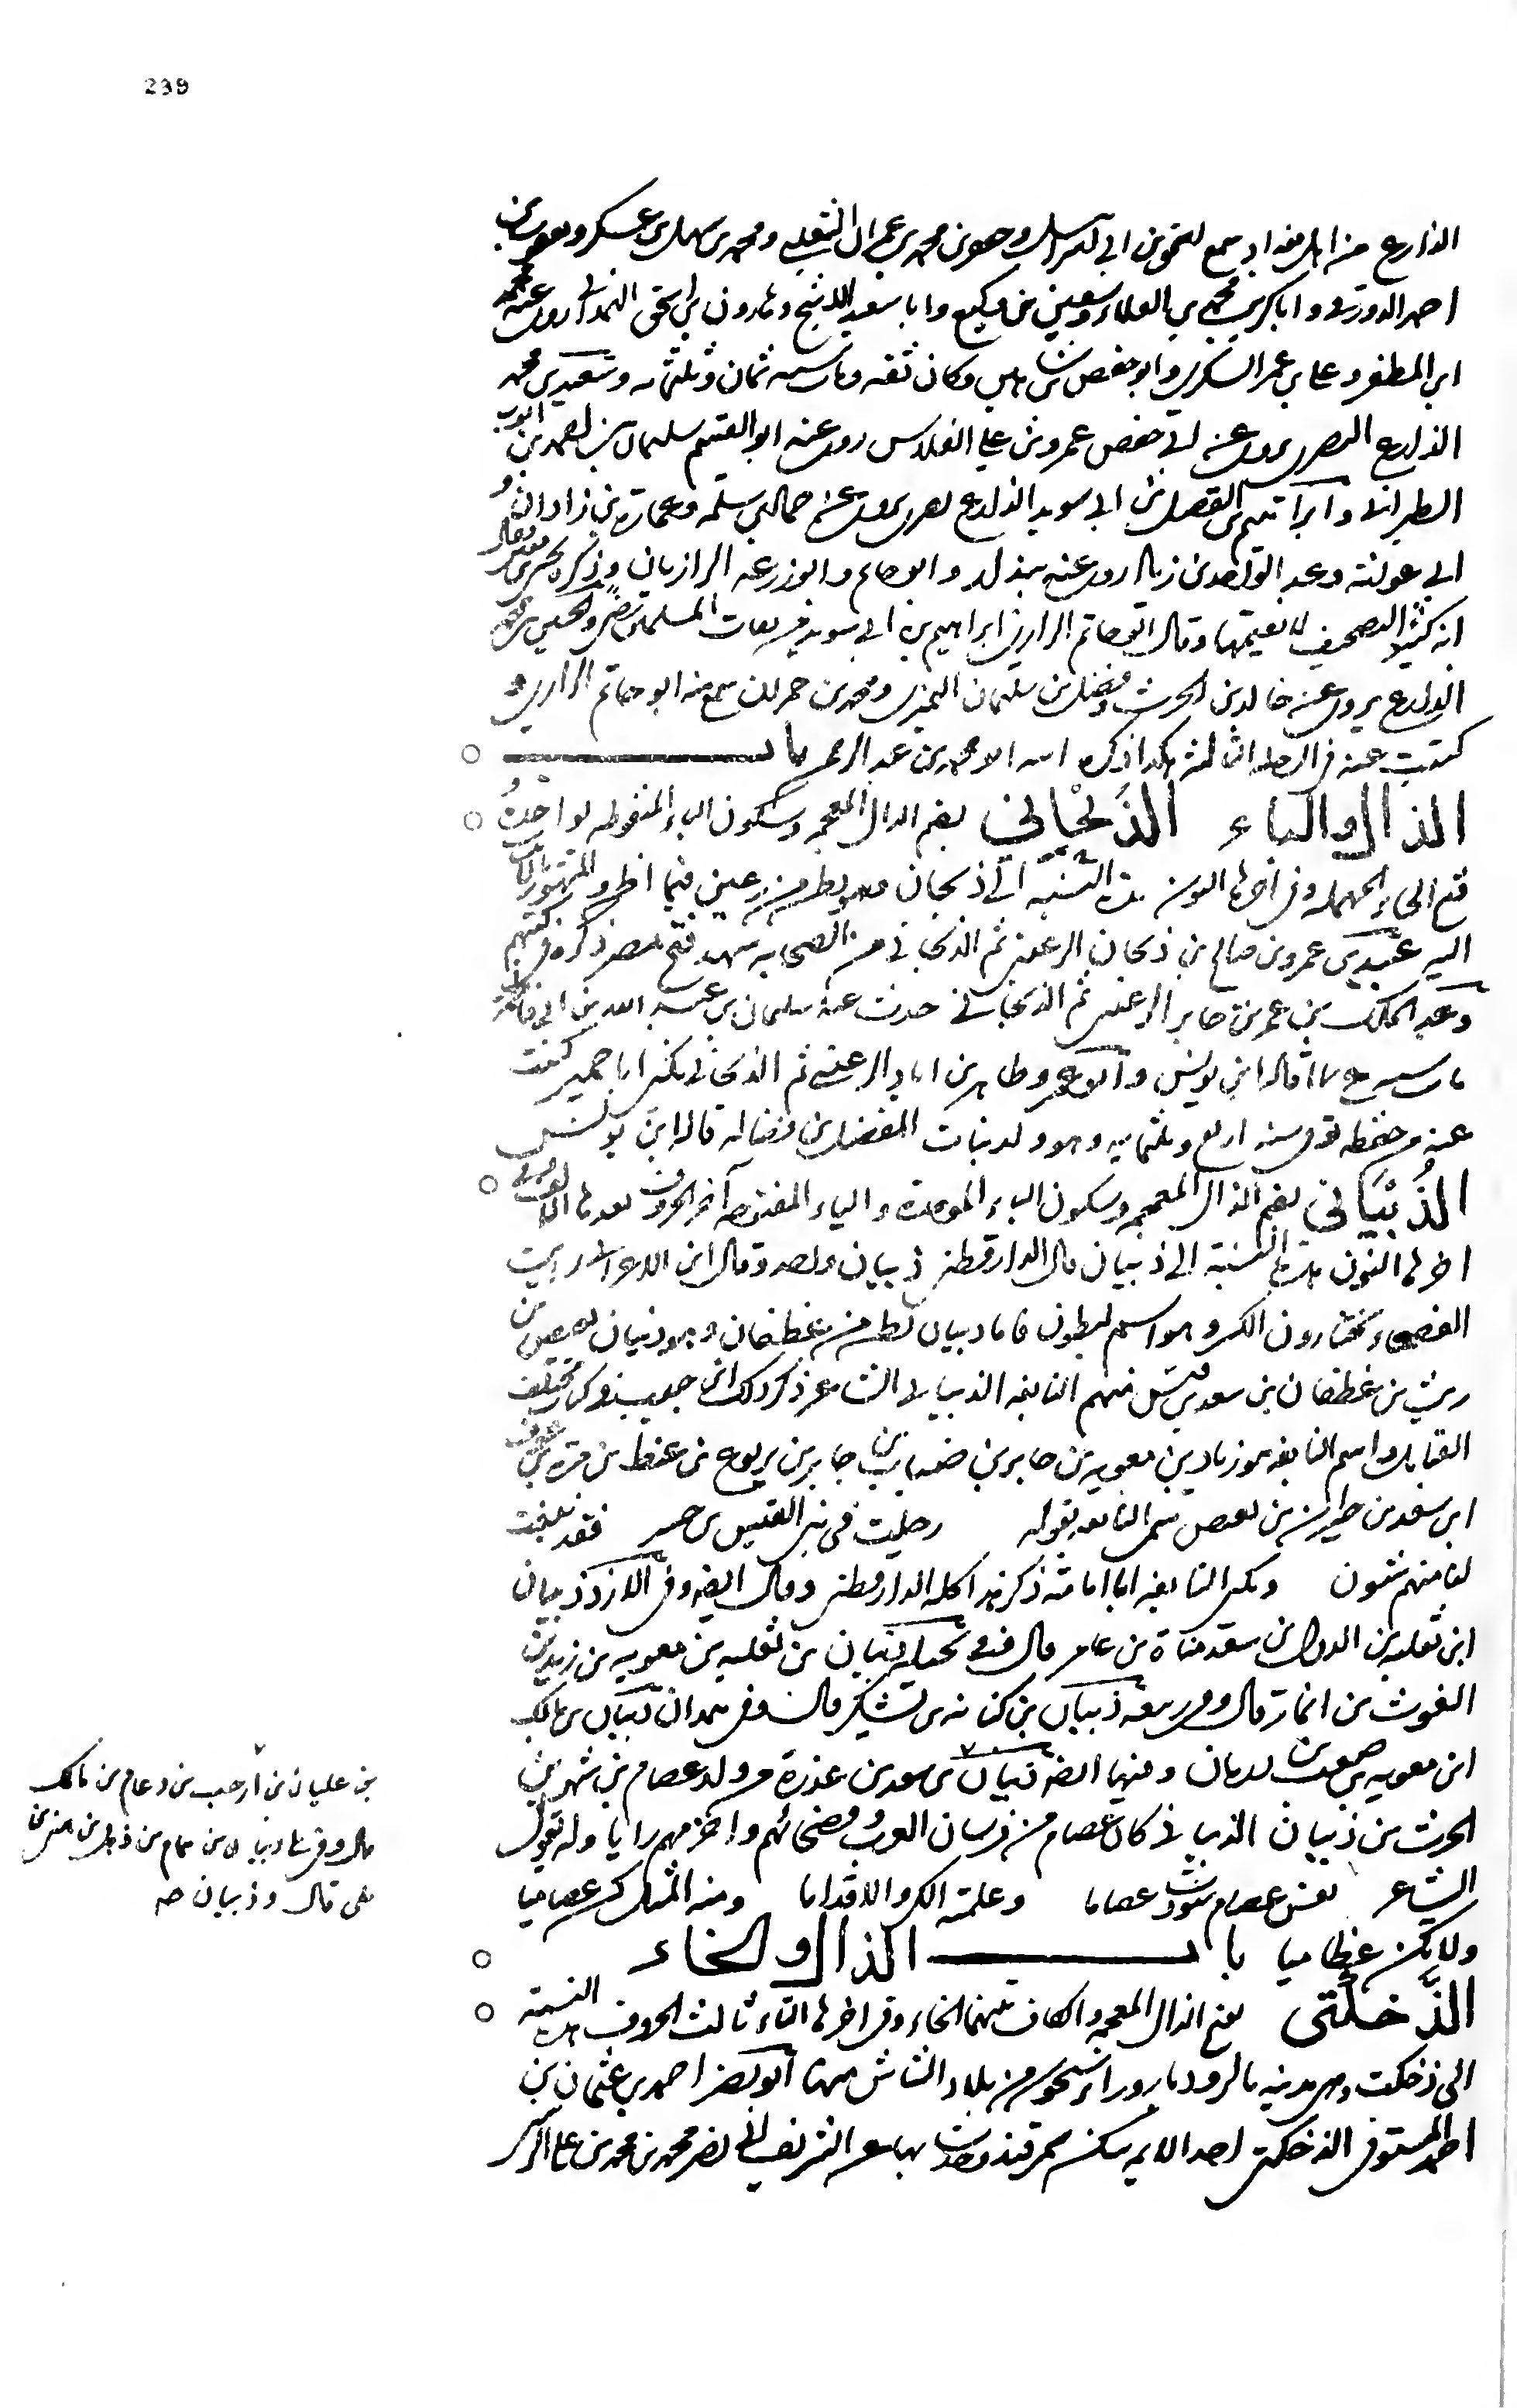 239
الذارع من اهل بغداد سمع اسحق بن ابي اسرايل وحفص بن محمد بن عمران الثعلبي ومحمد بن سهل بن عسكر ويعقوب بن
احمد الدورقي وابا كريب محمد بن العلاء وسفين بن وكيع وابا سعيد الاشج وهارون بن اسحق الهمداني روى عنه محمد
ابن المظفر وعلي بن عمر السكري وابو حفص بن شاهين وكان ثقه ومات سنه ثمان وثلثمايه وسعيد بن محمد
الذارع البصري يروى عن ابي حفص عمرو بن علي الفلاس روى عنه ابو القسم سليمان بن احمد بن ايوب
الطبراني وابراهيم بن الفضل بن ابي سويد الذارع بصري يروى عن حماد بن سلمه وعمارة بن زاذان و
ابي عوانة وعبد الواحد بن زياد روى عنه بندار وابو حاتم وابو زرعه الرازيان وذكره يحيى بن معين فقال
انه كثير التصحيف لا يقيمها وقال ابو حاتم الرازي ابراهيم بن ابي سويد من ثقات المسلمين رضى والحسين بن محمد
الذارع يروى عن خالد بن الحرث وفضيل بن سليمان النميري ومحمد بن حمران سمع منه ابو حاتم الرازي و
كتبت عنه في الرحلة الثالثة هكذا ذكره ابنه الامام محمد بن عبد الرحمن باب
الذال والباء الذبحاني بضم الذال المعجمه وسكون الباء المنقوطه بواحدة و
فتح الحاء المهمله وفي اخرها النون هذه النسبه الى ذبحان وهو بطن من رعين فيما اظن والمشهور بالانتساب
اليه عبيد بن عمرو بن صالح بن ذبحان الرعيني ثم الذبحاني من الصحابه شهد فتح مصر ذكره في كتبهم
وعبد الملك بن عمر بن جابر الرعيني ثم الذبحاني حدث عنه سليمان بن عبد الله بن ابي فاطمة
مات سنه قاله ابن يونس وطاهر بن اباد الرعيني ثم الذبحاني يكنى ابا حمير كتبت
عنه من حفظه توفي سنه اربع وثلثمايه وهو ولد بنات المفضل بن فضاله قاله ابن يونس
الذُبْيَاني بضم الذال المعجمه وسكون الباء الموحدة والياء المفتوحه آخر الحروف بعدها الالف وفي
اخرها النون هذه النسبة الى ذبيان قال الدارقطني ذبيان واحد وقال ابن الاعرابي رايت
الفصحاء يختارون الكسر وهو اسم لبطون فاما ذبيان بطن من غطفان وهو ذبيان بن بغيض بن
ريث بن غطفان بن سعد بن قيس منهم النابغه الذبياني الشاعر ذكر ذلك ابن حبيب في كتاب مختلف
القبايل واسم النابغه هو زياد بن معويه بن جابر بن ضباب بن جابر بن يربوع بن غيظ بن مرة بن عوف
ابن سعد بن ذبيان بن بغيض سمى النابغه بقوله وحلت في بني القيس بن جسر فقد نبغت
لنا منهم شئون ويكنى النابغه ابا امامة ذكر هذا كله الدارقطني وقال ايضا وفي الازد ذبيان
ابن ثعلبه بن الدول بن سعد مناة بن عامر قال وفي بجيله ذبيان بن ثعلبه بن معويه بن زيد بن
الغوث بن انمار قال وفي ربيعه ذبيان بن كنانه بن يشكر قال وفي همدان ذبيان بن مالك
ابن معويه بن صعب بن دومان وفيها ايضا ذبيان بن سعد بن عذرة من ولده عصام بن شهبر بن
الحرث بن ذبيان الذبياني كان عصام من فرسان العرب وفصحائهم واحزمهم رايا وله يقول
الشاعر نفس عصام سودت عصاما وعلمته الكر والاقداما ومنه المثل كن عصاميا
ولا تكن عظاميا باب الذال والخاء
الذَّخكَتي بفتح الذال المعجمه والكاف بينهما الخاء وفي اخرها التاء ثالث الحروف هذه النسبة
الى ذخكت وهي مدينه بالروذبار وراء سيحون من بلاد الشاش منها ابو نصر احمد بن عثمان بن
احمد المستوفي الذخكتي احد الايمه سكن سمرقند وحدث بها عن الشريف ابي نصر محمد بن محمد بن علي
بن عليان بن أرحب بن دعام بن مالك
قال وفي
قال وذبيان صه